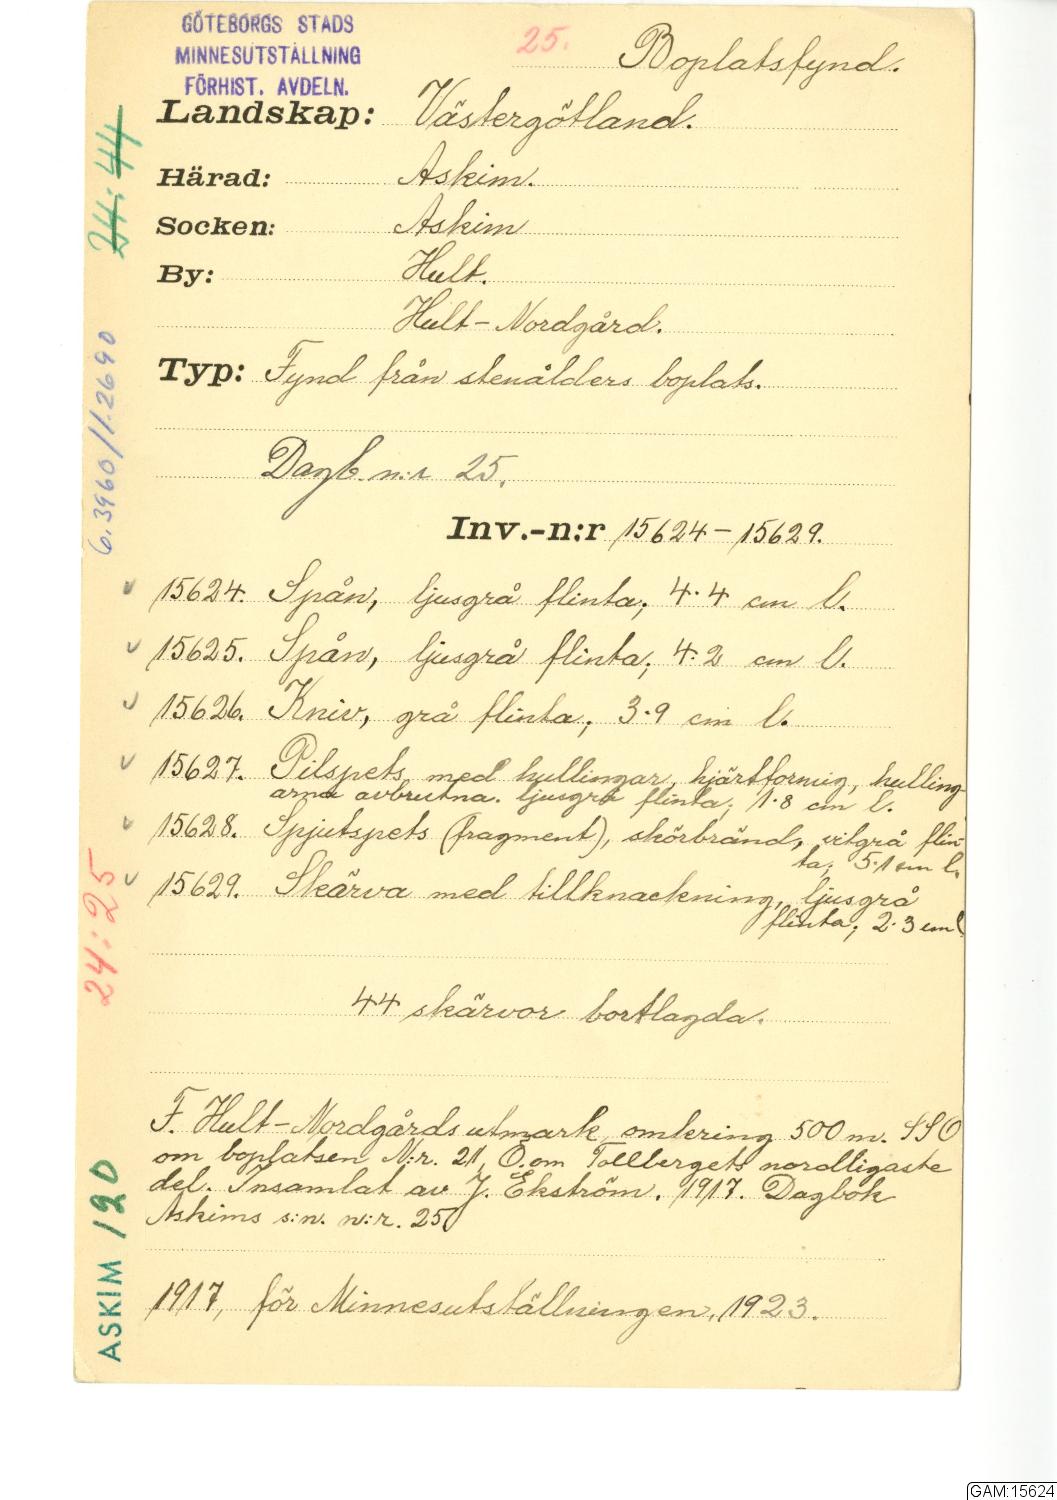 GÖTEBORGS STADS
MINNESUTSTÄLLNING
FÖRHIST. AVDELN.
25.
Boplatsfynd.
Landskap: Västergötland.
Härad: Askim.
Socken: Askim
By: Hult.
Hult-Nordgård.
Typ: Fynd från stenålders boplats.
Dagb. n:r 25.
Inv.-n:r 15624-15629.
15624. Spån, ljusgrå flinta; 4.4 cm l.
15625. Spån, ljusgrå flinta; 4.2 cm l.
15626. Kniv, grå flinta; 3.9 cm l.
15627. Pilspets med hullingar, hjärtformig, hulling-
arna avbrutna. ljusgrå flinta; 1.8 cm l.
15628. Spjutspets (fragment), skörbränd, vitgrå flin-
ta; 5.1 cm l.
15629. Skärva med tillknackning, ljusgrå
flinta; 2.3 cm l
44 skärvor bortlagda.
F. Hult-Nordgårds utmark omkring 500 m. SSO
om boplatsen N:r. 21, Ö. om Tollbergets nordligaste
del. Insamlat av J. Ekström. 1917. Dagbok
Askims s:n. n:r. 25
1917, för Minnesutställningen, 1923.
24:44
6.3960/1.2690
24:25
ASKIM 120
GAM:15624